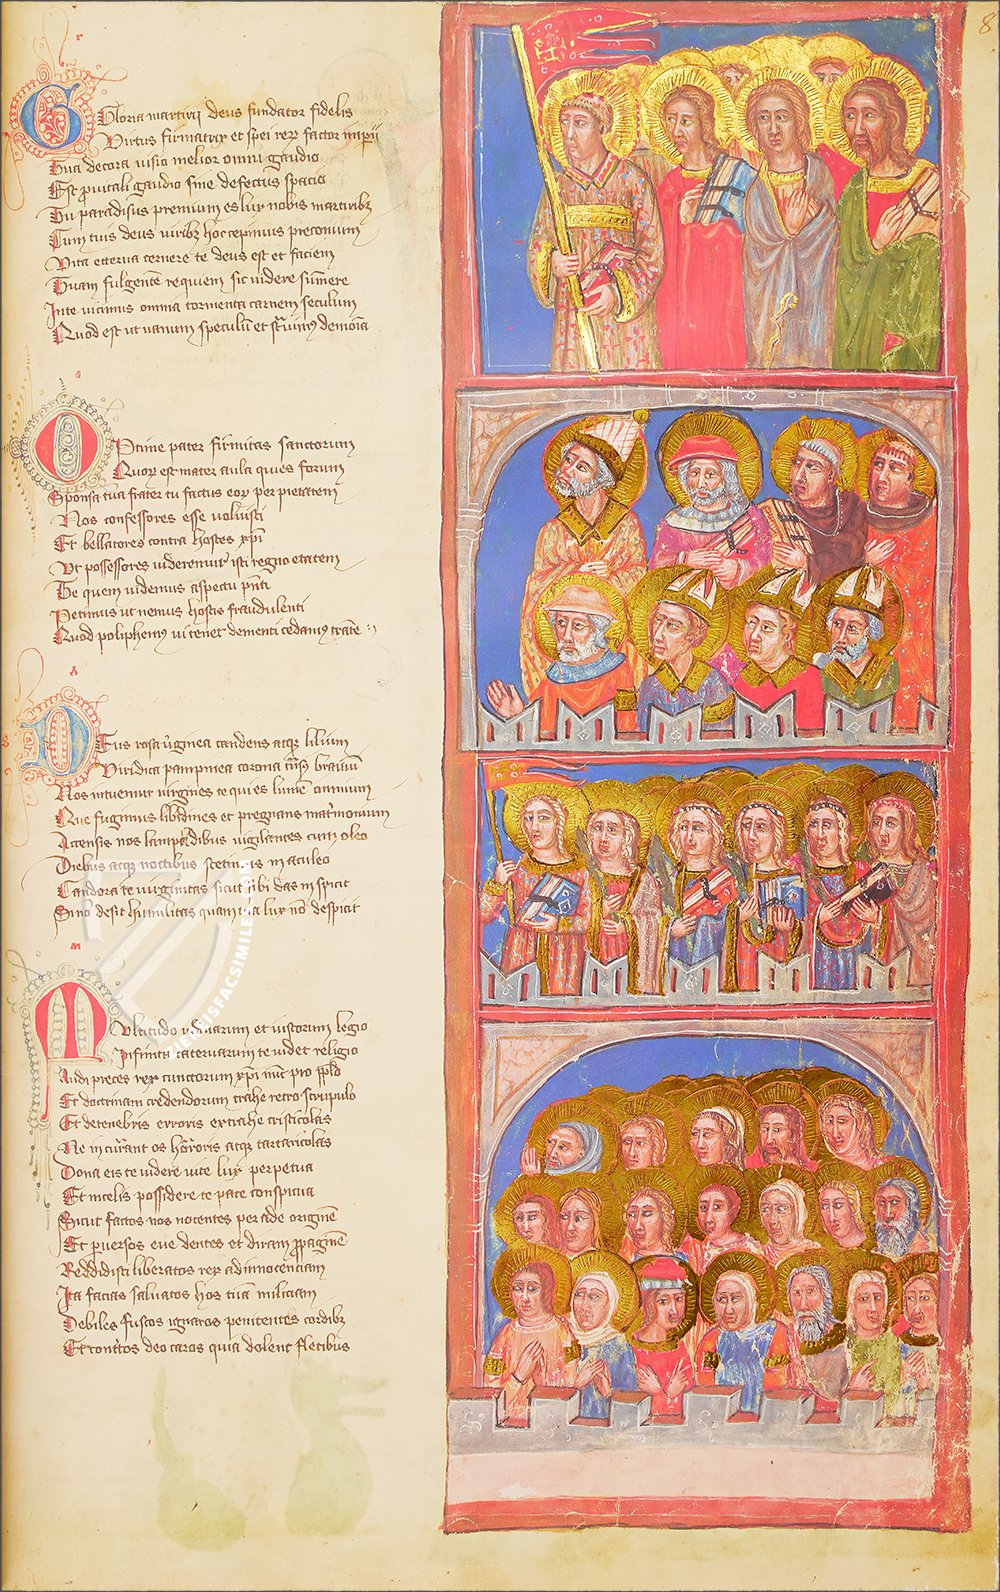 8
Gloria martirij deus fundator fidelis
Virtus firmator et spei rex factor imperij
Tua decora visio melior omni gaudio
Est pro vitali gaudio sine defectus spacio
Tu paradisus premium es lux nobis martiribz
Cum tuis deus viribz hoc cepimus preconium
Vita eterna cernere te deus est et faciem
Tuam fulgentē requiem sic videre sūmere
In te vicimus omnia tormenta carnem seculum
Quod est ut vanum speculū et demonia
Optime pater firmitas sanctorum
Quorum est mater aula quies forum
Sponsa tua frater tu factus eorum per pietatem
Nos confessores esse voluisti
Et bellatores contra hostes xpi
Ut possessores videremur isti regno etatem
Te quem videmus aspectu pnti
Petimus ut nemus hostis fraudulenti
Quod poliphemus vi tenet dementi cedamus
Deus rosa virginea candens atqz lilium
Viridica pampinea corona bravium
Nos intuemur virgines te qui es lumē omnium
Que fugimus libidines et pregnans mat'monium
Accensis nos lampadibus vigilantes cum oleo
Diebus atqz noctibus stetimus in aculeo
Candora te virginitas sicut sibi das inspicit
Si nō desit humilitas quam tua lux nō despicit
Multitudo viduarum et iustorum legio
Infinita catervarum te videt religio
Audi preces rex cunctorum xpi nūc pro pplo
Et doctrinam credendorum trahe retro scrupulo
Et de tenebris erroris extrahe tristicolas
Ne incurrant os horroris atqz tartaricolas
Dona eis te videre vite lux perpetua
Et in celis possidere te pace conspicua
Sicut factos nos nocentes per ade originē
Et perversos eve dentes et diram propaginē
Reddidisti liberatos rex ad innocenciam
Ita facias salvatos hos tuā militiam
Debiles fustos ignaros penitentes cordibz
Et contritos deo caros quia dolent fletibus
ZIEREISFACSIMILES.COM